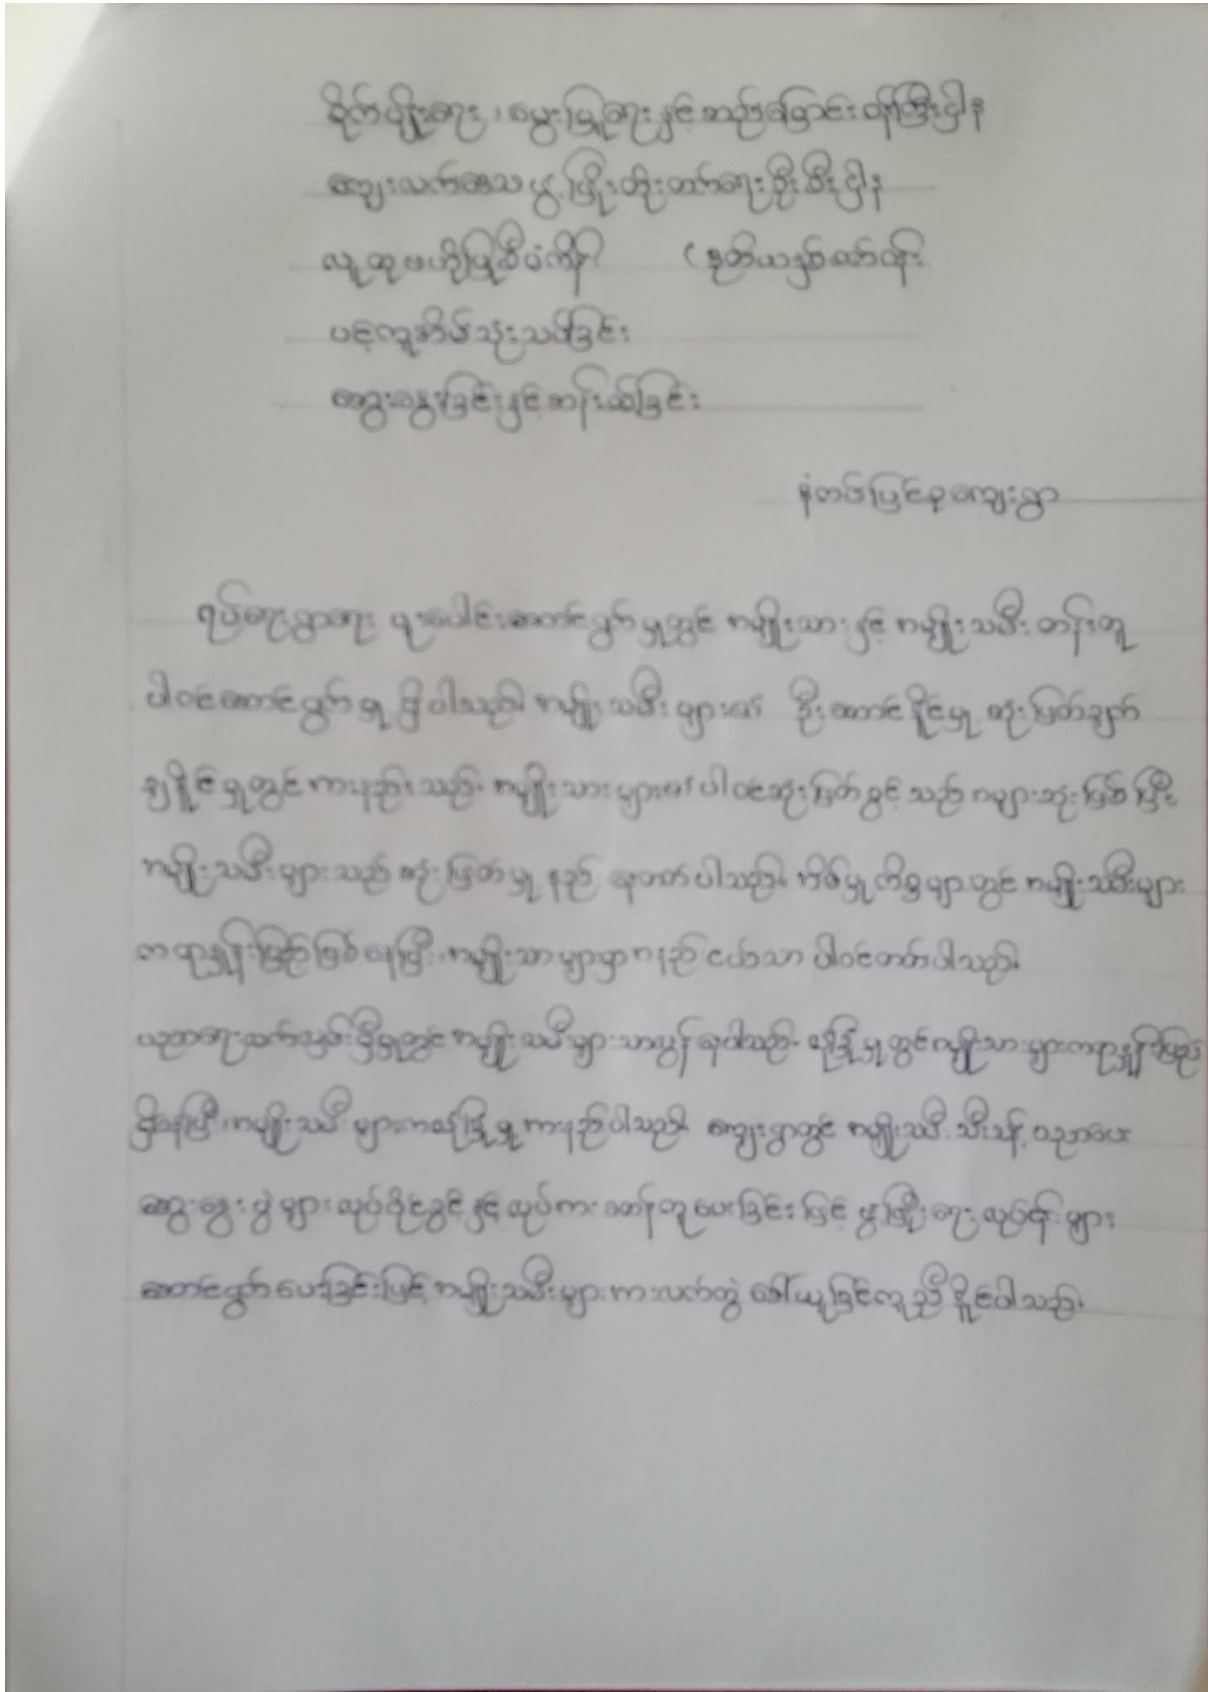 စိုက်ပျိုးရေး၊ မွေးမြူရေးနှင့်ဆည်မြောင်းဝန်ကြီးဌာန
ကျေးလက်ဒေသဖွံ့ဖြိုးတိုးတက်ရေးဦးစီးဌာန
လူထုဗဟိုပြုစီမံကိန်း (ဒုတိယနှစ်ထပ်ဝန်း
ပင့်ကူအိမ်သုံးသပ်ခြင်း
ဆွေးနွေးခြင်းနှင့်ဆန်းစစ်ခြင်း
နံတပ်မြင်စုကျေးရွာ
ရပ်ရေးရွာရေး ပူးပေါင်းဆောင်ရွက်မှုတွင် အမျိုးသားနှင့် အမျိုးသမီး တန်းတူ
ပါဝင်ဆောင်ရွက်မှု ရှိပါသည်။ အမျိုးသမီးများ၏ ဦးဆောင်နိုင်မှု ဆုံးဖြတ်ချက်
ချနိုင်မှုတွင်ကားနည်းသည်။ အမျိုးသားများ၏ပါဝင်ဆုံးဖြတ်ခွင့်သည် အများဆုံးဖြစ်ပြီး
အမျိုးသမီးများသည် ဆုံးဖြတ်မှု နည်း နေတတ်ပါသည်။ အိမ်မှုကိစ္စများတွင် အမျိုးသမီးများ
က ရာနှုန်းပြည့်ဖြစ်နေပြီး၊ အမျိုးသားများမှာ အနည်းငယ်သာ ပါဝင်တတ်ပါသည်။
ပညာရေးထက်မြက်ရှိမှုတွင် အမျိုးသမီးများသာလွန်နေပါသည်။ လုံခြုံမှုတွင်အမျိုးသားများကရာနှုန်းပြည့်
ရှိနေပြီး၊ အမျိုးသမီးများကလုံခြုံမှုကားနည်းပါသည်။ ကျေးရွာတွင် အမျိုးသမီးသီးသန့် ပညာပေး
ဆွေးနွေးပွဲများ လုပ်ပိုင်ခွင့်နှင့် လုပ်ကားခတန်းတူပေးခြင်းဖြင့် ဖွံ့ဖြိုးရေးလုပ်ငန်းများ
ဆောင်ရွက်ပေးခြင်းဖြင့် အမျိုးသမီးများကားလက်တွဲ ခေါ်ယူခြင်းကူညီနိုင်ပါသည်။